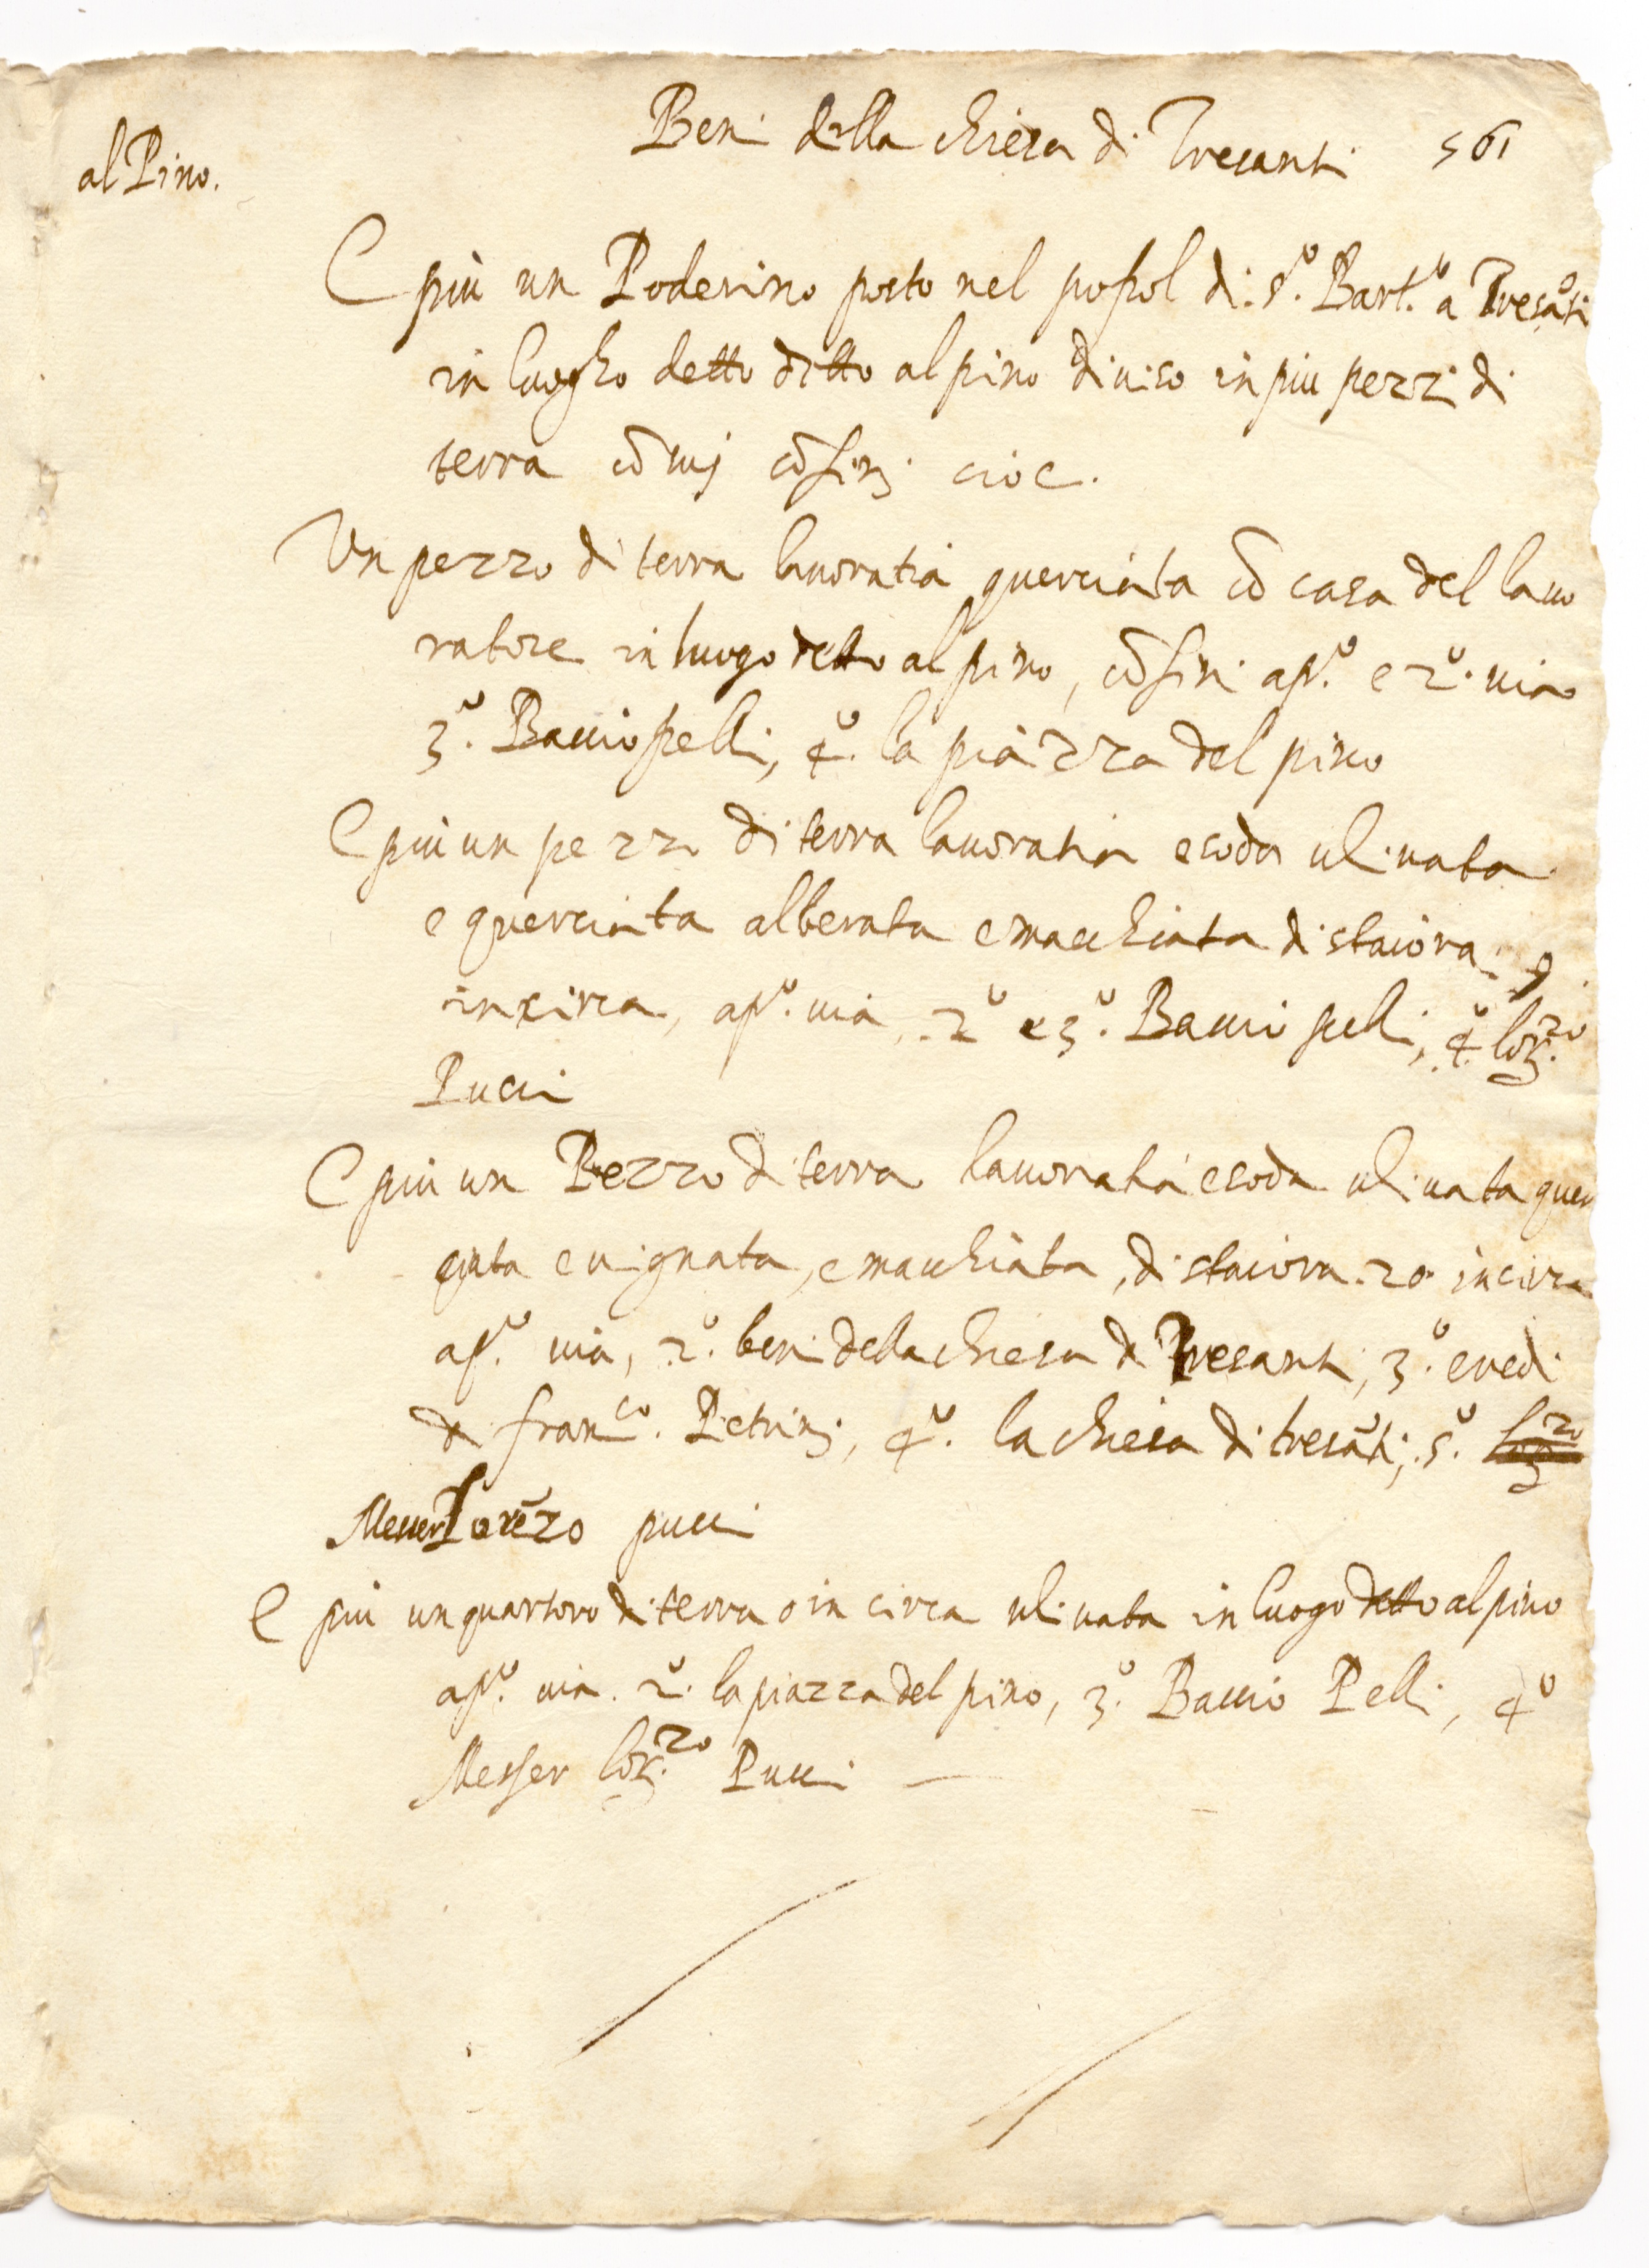 Beni della chiesa di Tresanti 561
al Pino.
E più un Poderino posto nel popol di S.º Bart.º a Tresãti
in luogho detto ditto al pino diuiso in piu pezzi di
terra cõ suoj cõfinj cioe.
Un pezzo di terra lauoratia querciata cõ casa del lauo
ratore in luogo detto al pino, cõfini a pº. e 2º. uia
3º. Baccio pelli, 4º. la piazza del pino
E più un pezzo di terra lauoratia e soda uliuata
e querciata alberata e macchiata di staiora 9.
in circa, a pº. uia, 2º e 3º. Baccio pelli, 4º Lor.zo
Pucci
E più un Pezzo di terra lauoratia e soda uliuata quer
ciata e uignata, e macchiata, di staiora 20 in circa
a pº. uia, 2º. beni della chiesa di Tresanti, 3º. eredi
di franco. Petrinj, 4º. la chiesa di tresãti, 5º. Lorzo
Messer Lorẽzo pucci
E più un quartoro di terra o in circa uliuata in luogo detto al pino
a pº. uia. 2º. la piazza del pino, 3º. Baccio Pelli, 4º
Messer Lor.zo Pucci —